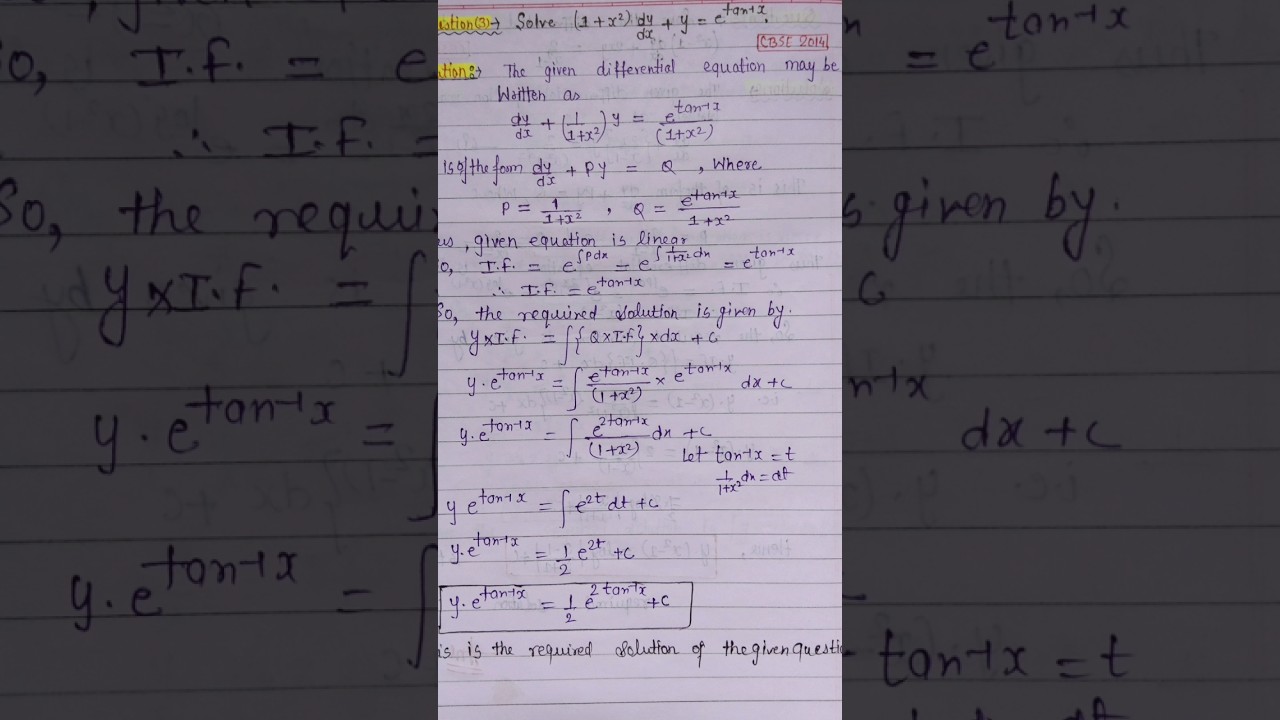 uestion(3):→ Solve (1+x²) dy/dx + y = e^tan⁻¹x.
[CBSE 2014]
ution:→ The given differential equation may be
Written as
dy/dx + (1/1+x²) y = e^tan⁻¹x/(1+x²)
is of the form dy/dx + Py = Q , Where
P = 1/1+x² , Q = e^tan⁻¹x/1+x²
us, given equation is linear
o, I.f. = e^∫Pdx = e^∫1/1+x² dx = e^tan⁻¹x
∴ I.f. = e^tan⁻¹x
So, the required solution is given by.
y×I.f. = ∫{Q×I.f} × dx + c
y·e^tan⁻¹x = ∫ e^tan⁻¹x/(1+x²) × e^tan⁻¹x dx + c
y·e^tan⁻¹x = ∫ e^2tan⁻¹x/(1+x²) dx + c
Let tan⁻¹x = t
1/1+x² dx = dt
y e^tan⁻¹x = ∫ e^2t dt + c
y·e^tan⁻¹x = 1/2 e^2t + c
y·e^tan⁻¹x = 1/2 e^2tan⁻¹x + c
is is the required solution of the given questio